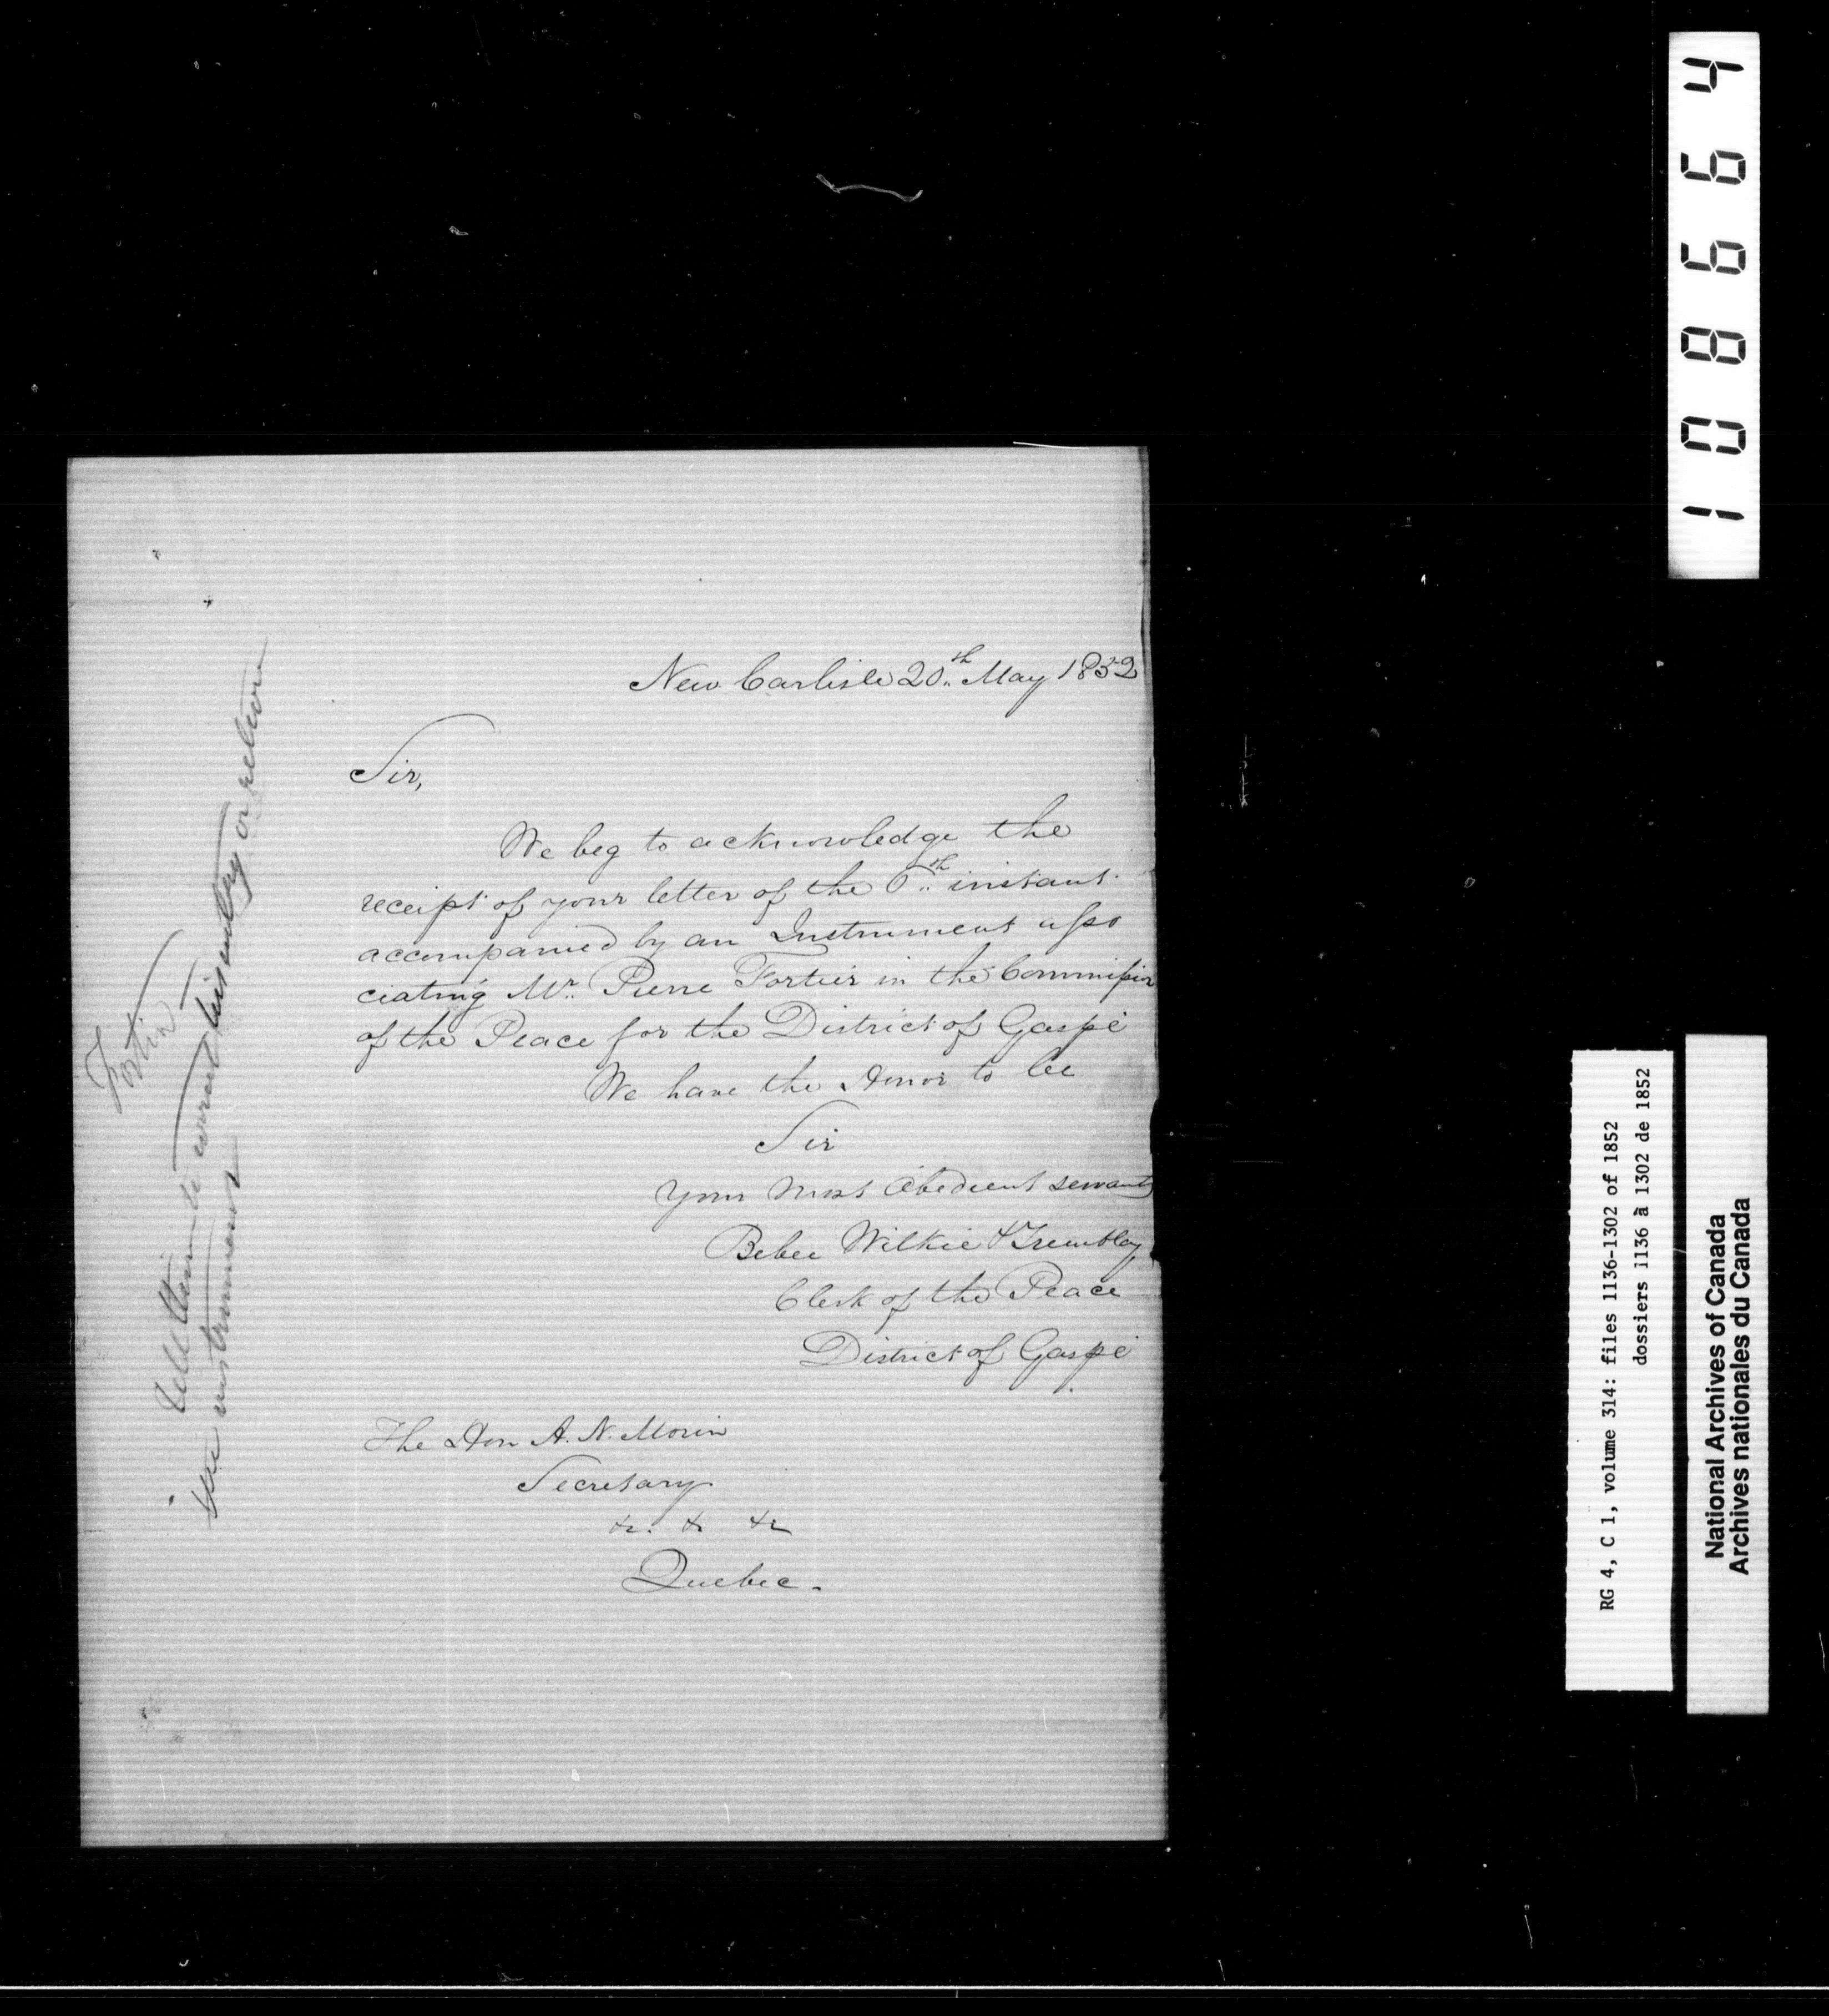 New Carlisle 20th May 1852
Sir,
We beg to acknowledge the
receipt of your letter of the 6th instant
accompanied by an Instrument asso
ciating Mr. Pierre Fortier in the Commission
of the Peace for the District of Gaspé
We have the Honor to be
Sir
Your Most Obedient servants
Bebee Wilkie & Tremblay
Clerk of the Peace
District of Gaspé
The Hon A. N. Morin
Secretary
&c. & &c
Quebec.
Fortin
Tell them to correct this entry or return
the instrument
108664
RG 4, C 1, volume 314: files 1136-1302 of 1852
dossiers 1136 à 1302 de 1852
National Archives of Canada
Archives nationales du Canada